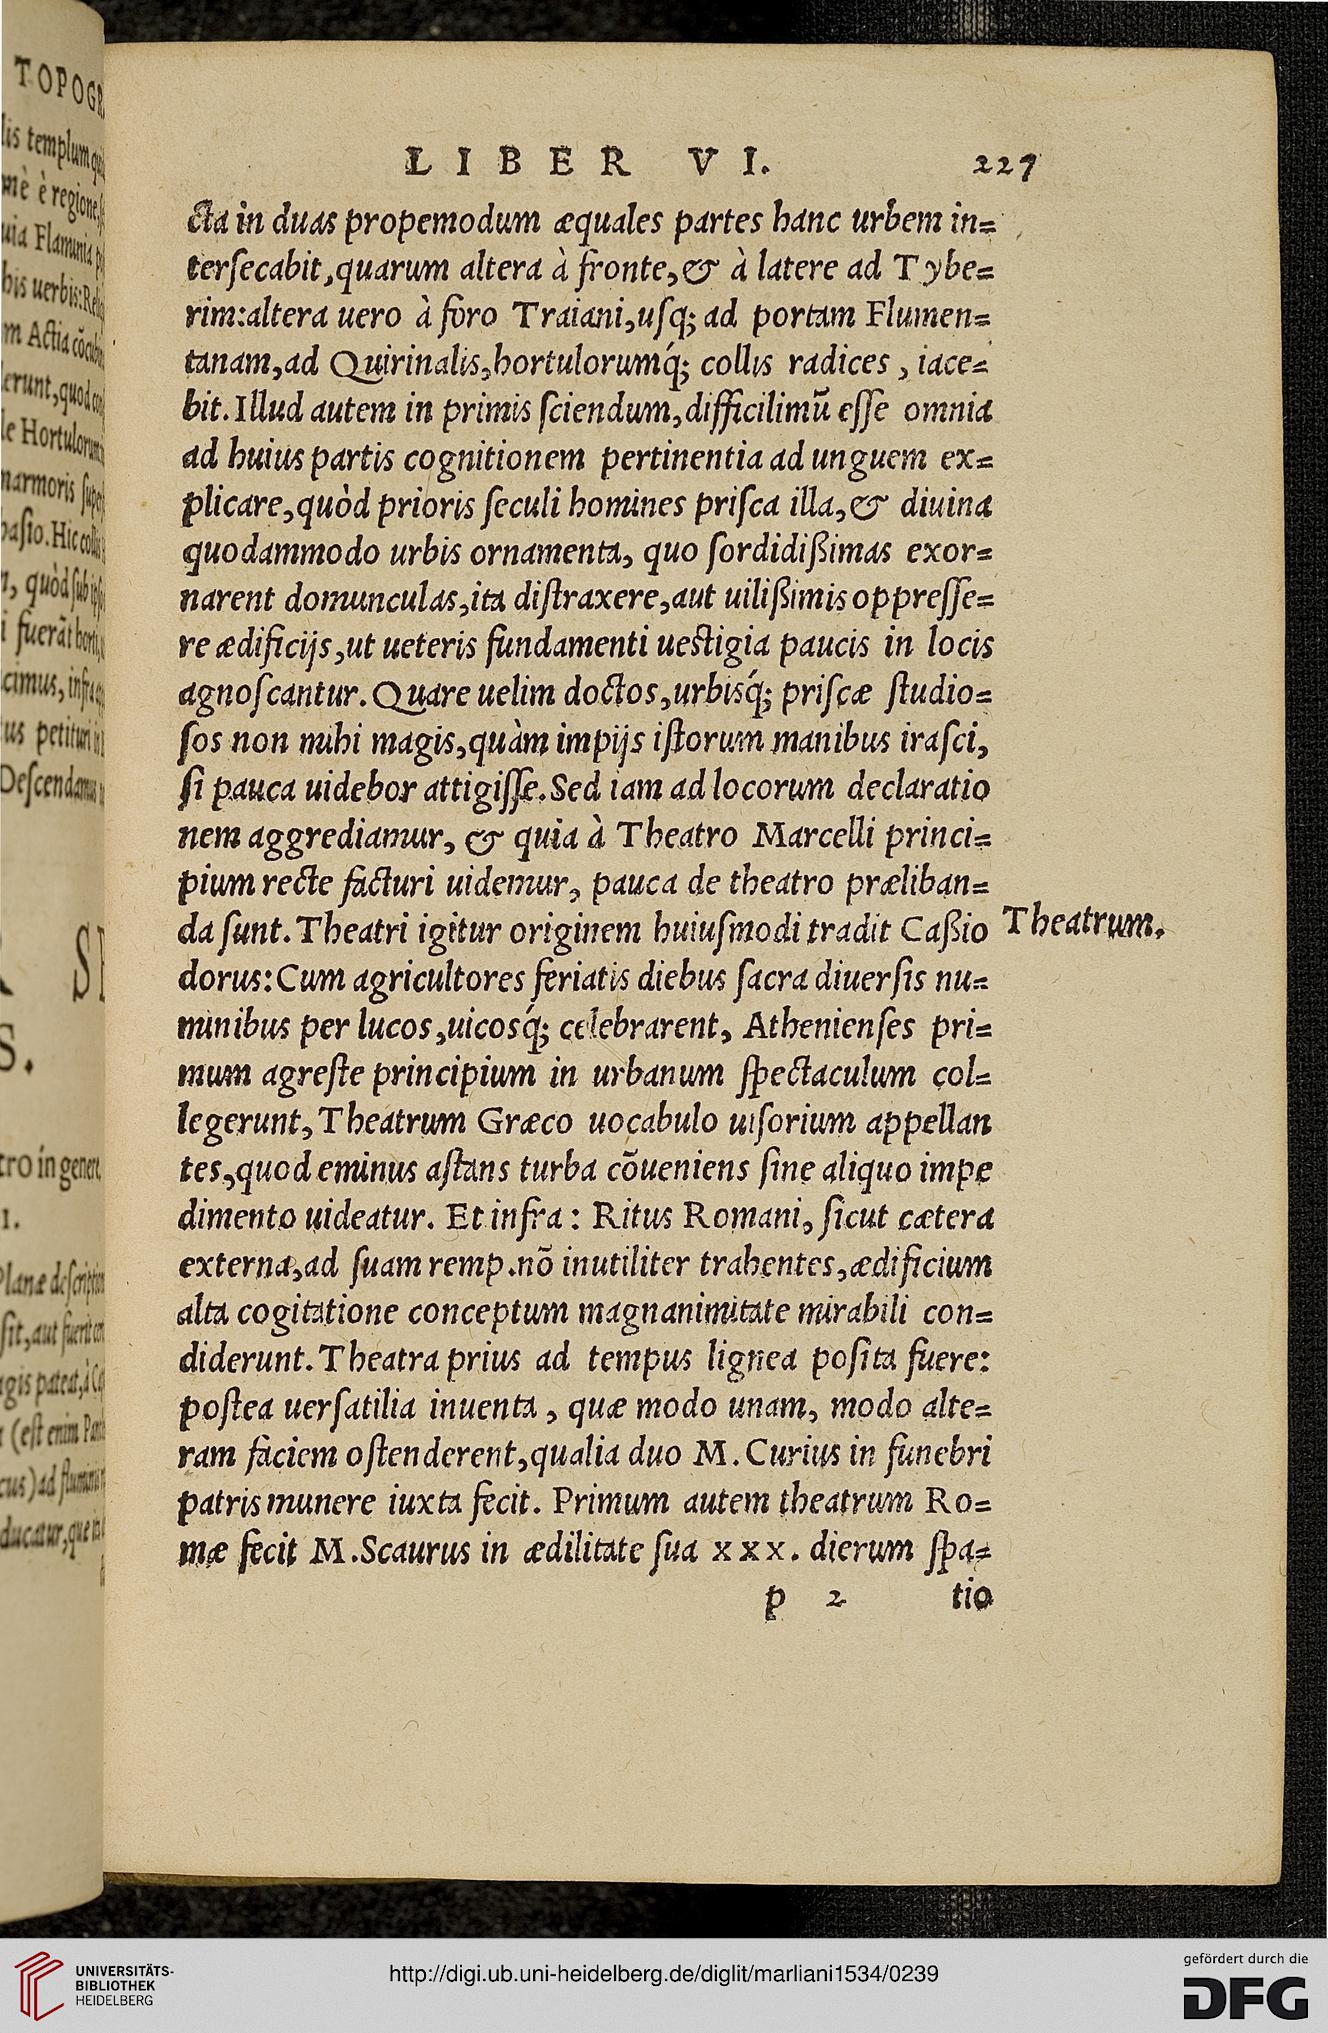 LIBER VI. 227
cta in duas propemodum æquales partes hanc urbem in=
terſecabit,quarum altera à fronte,& à latere ad Tybe=
rim:altera uero à foro Traiani,uſq; ad portam Flumen=
tanam,ad Quirinalis,hortulorumq́; collis radices , iace=
bit.Illud autem in primis ſciendum,difficilimū eſſe omnia
ad huius partis cognitionem pertinentia ad unguem ex=
plicare,quòd prioris ſeculi homines priſca illa,& diuina
quodammodo urbis ornamenta, quo ſordidißimas exor=
narent domunculas,ita diſtraxere,aut uilißimis oppreſſe=
re ædificijs,ut ueteris fundamenti ueſtigia paucis in locis
agnoſcantur.Quare uelim doctos,urbisq́; priſcæ ſtudio=
ſos non mihi magis,quàm impijs iſtorum manibus iraſci,
ſi pauca uidebor attigiſſe.Sed iam ad locorum declaratio
nem aggrediamur, & quia à Theatro Marcelli princi=
pium recte facturi uidemur, pauca de theatro præliban=
da ſunt.Theatri igitur originem huiuſmodi tradit Caßio
Theatrum.
dorus:Cum agricultores feriatis diebus ſacra diuerſis nu=
minibus per lucos,uicosq́; celebrarent, Athenienſes pri=
mum agreſte principium in urbanum ſpectaculum col=
legerunt,Theatrum Græco uocabulo uiſorium appellan
tes,quod eminus aſtans turba cōueniens ſine aliquo impe
dimento uideatur. Et infra : Ritus Romani, ſicut cætera
externa,ad ſuam remp.nō inutiliter trahentes,ædificium
alta cogitatione conceptum magnanimitate mirabili con=
diderunt.Theatra prius ad tempus lignea poſita fuere:
poſtea uerſatilia inuenta , quæ modo unam, modo alte=
ram faciem oſtenderent,qualia duo M.Curius in funebri
patris munere iuxta fecit. Primum autem theatrum Ro=
mæ fecit M.Scaurus in ædilitate ſua xxx. dierum ſpa=
p 2 tio
TOPOGR
lis templum
mè è regione,
uia Flaminia
bis uerbis:
m Actia
erunt,quod
le Hortulorum
marmoris
Hic
quòd ſub
i fuerāt horti
cimus, infra
us petituri
Deſcendamus
S.
tro in genere
I.
ſit,aut fuerit
(eſt enim
ducatur,que
UNIVERSITÄTS-
BIBLIOTHEK
HEIDELBERG
http://digi.ub.uni-heidelberg.de/diglit/marliani1534/0239
gefördert durch die
DFG